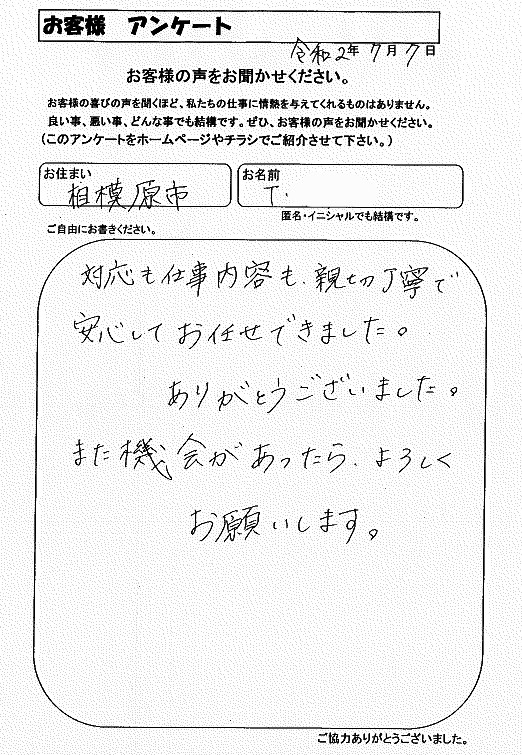 お客様 アンケート
令和2年7月7日
お客様の声をお聞かせください。
お客様の喜びの声を聞くほど、私たちの仕事に情熱を与えてくれるものはありません。
良い事、悪い事、どんな事でも結構です。ぜひ、お客様の声をお聞かせください。
(このアンケートをホームページやチラシでご紹介させて下さい。)
お住まい
相模原市
お名前
T.
匿名・イニシャルでも結構です。
ご自由にお書きください。
対応も仕事内容も、親切丁寧で
安心してお任せできました。
ありがとうございました。
また機会があったら、よろしく
お願いします。
ご協力ありがとうございました。